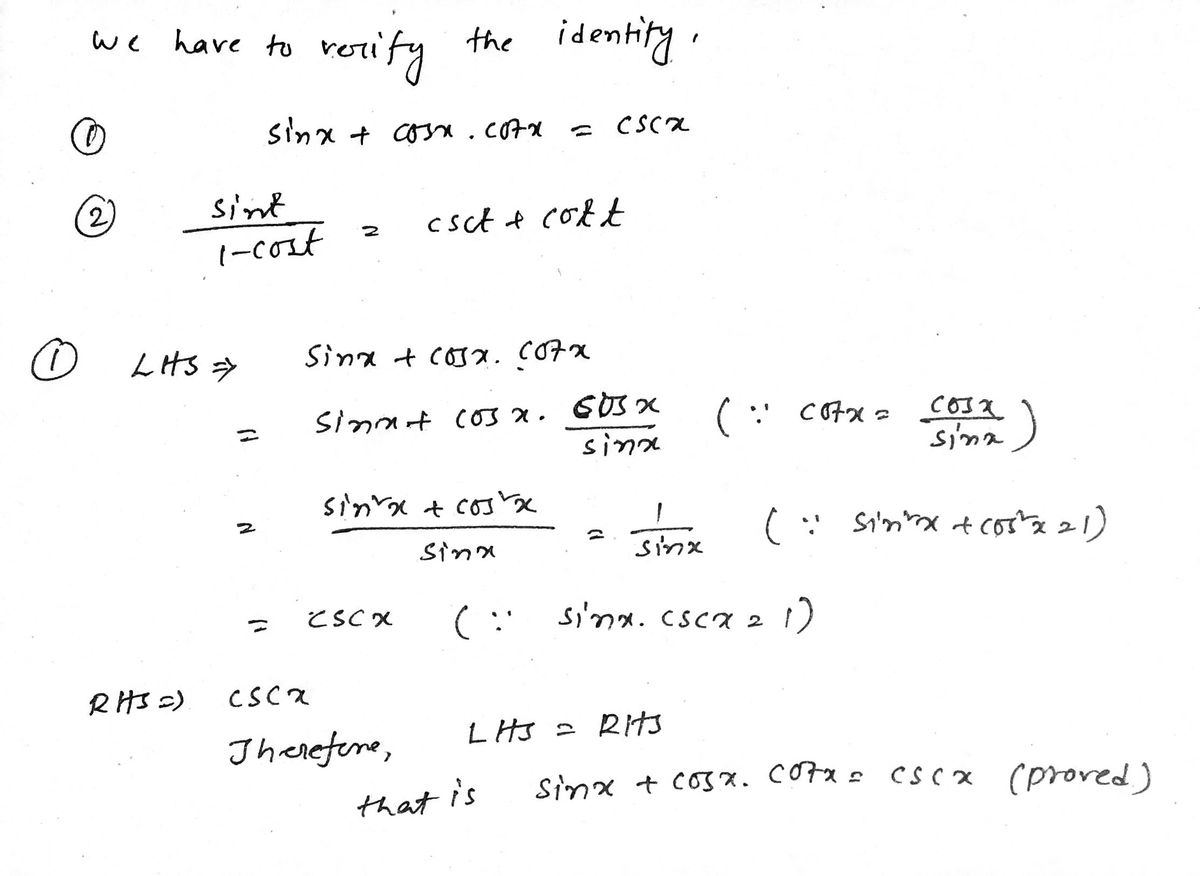 we have to verify the identity,
① sinx + cosx . cotx = cscx
② sint / 1-cost = csct + cott
① LHS ⇒ sinx + cosx. cotx
= sinx + cos x. cos x / sinx (∵ cotx = cosx / sinx)
= sin²x + cos²x / sinx = 1 / sinx (∵ sin²x + cos²x = 1)
= cscx (∵ sinx. cscx = 1)
RHS ⇒ cscx
Therefore, LHS = RHS
that is sinx + cosx. cotx = cscx (proved)